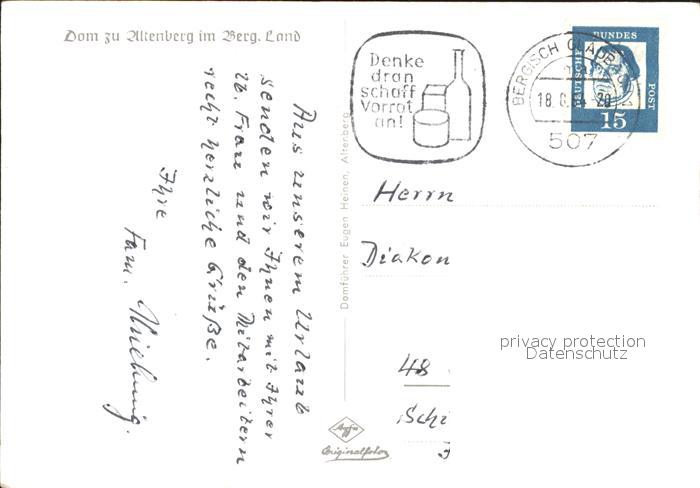 Dom zu Altenberg im Berg. Land
Denke
dran
schaff
Vorrat
an!
BERGISCH GLADBACH
18.6.
-20
507
DEUTSCHE BUNDES
POST
15
Aus unserem Urlaub
senden wir Ihnen mit Ihrer
lb. Frau und den Mitarbeitern
recht herzliche Grüße.
Ihre
Fam.
Domführer Eugen Heinen, Altenberg
Herrn
Diakon
48
Schi
privacy protection
Datenschutz
Agfa
Originalfoto